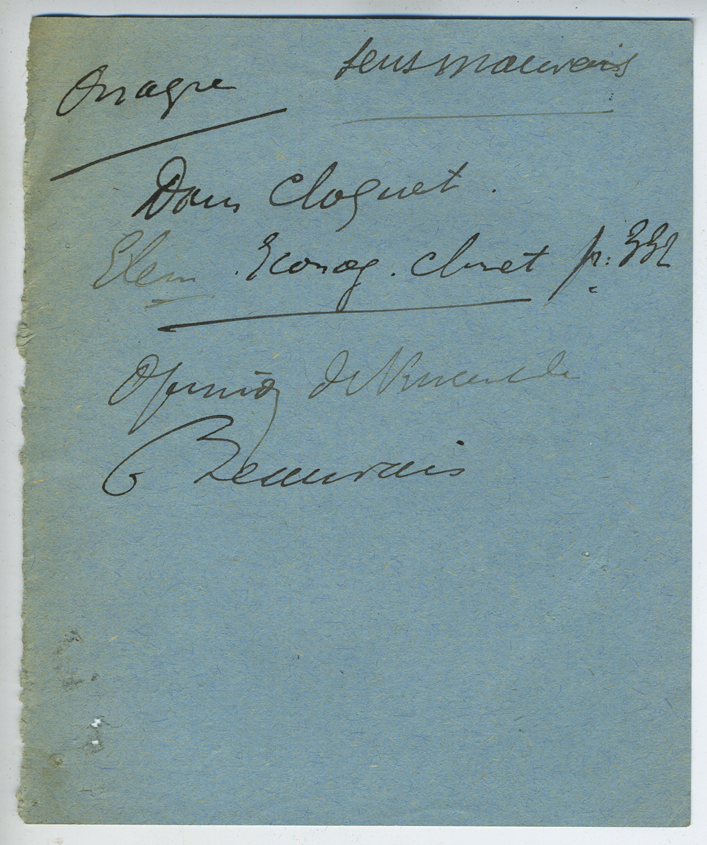 Onagre sens mauvais
Dans Cloquet.
Elem. Iconog. chret p. 332
Opinion de Vincent de
Beauvais